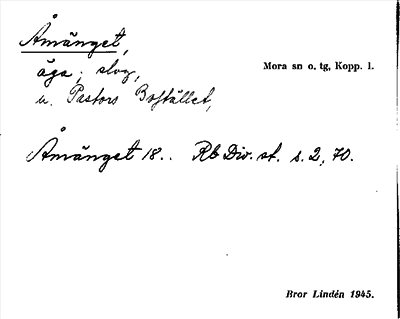 Åmänget,
äga; slog,
Mora sn o. tg, Kopp. l.
u. Pastors Boställe,
Åmänget 18.. Rb Div. st. s. 2, 70.
Bror Lindén 1945.